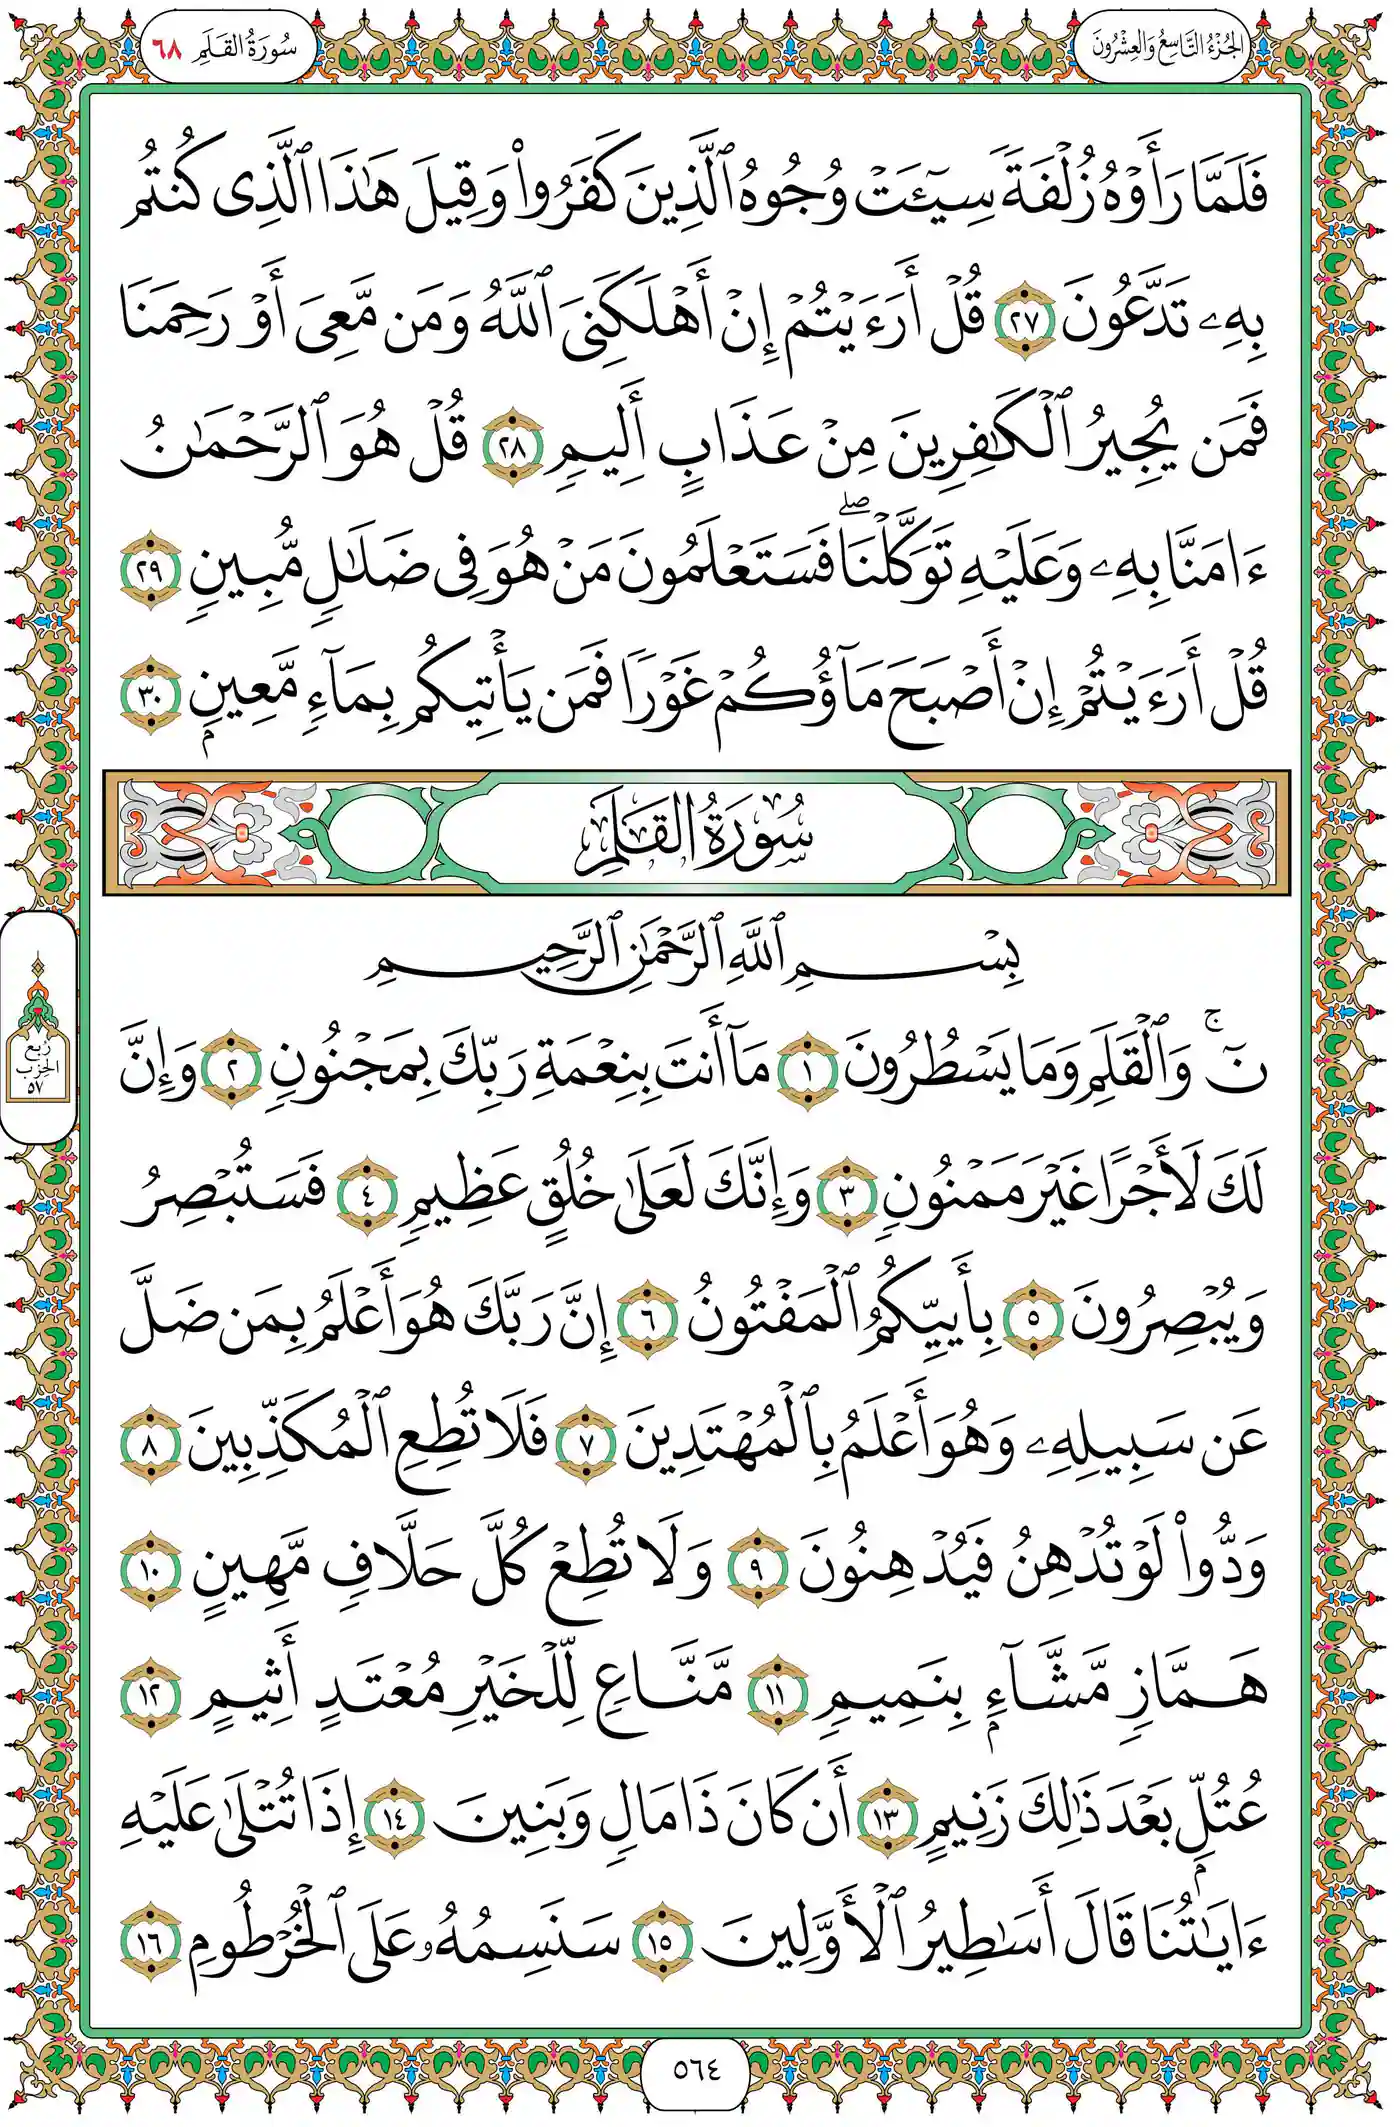 الجُزْءُ التَّاسِعُ وَالعِشْرُونَ
سُورَةُ القَلَمِ ٦٨
فَلَمَّا رَأَوْهُ زُلْفَةً سِيٓـَٔتْ وُجُوهُ ٱلَّذِينَ كَفَرُوا۟ وَقِيلَ هَٰذَا ٱلَّذِى كُنتُم
بِهِۦ تَدَّعُونَ ٢٧ قُلْ أَرَءَيْتُمْ إِنْ أَهْلَكَنِىَ ٱللَّهُ وَمَن مَّعِىَ أَوْ رَحِمَنَا
فَمَن يُجِيرُ ٱلْكَٰفِرِينَ مِنْ عَذَابٍ أَلِيمٍ ٢٨ قُلْ هُوَ ٱلرَّحْمَٰنُ
ءَامَنَّا بِهِۦ وَعَلَيْهِ تَوَكَّلْنَا ۖ فَسَتَعْلَمُونَ مَنْ هُوَ فِى ضَلَٰلٍ مُّبِينٍ ٢٩
قُلْ أَرَءَيْتُمْ إِنْ أَصْبَحَ مَآؤُكُمْ غَوْرًا فَمَن يَأْتِيكُم بِمَآءٍ مَّعِينٍۭ ٣٠
سُورَةُ القَلَمِ
بِسْمِ ٱللَّهِ ٱلرَّحْمَٰنِ ٱلرَّحِيمِ
نٓ ۚ وَٱلْقَلَمِ وَمَا يَسْطُرُونَ ١ مَآ أَنتَ بِنِعْمَةِ رَبِّكَ بِمَجْنُونٍ ٢ وَإِنَّ
لَكَ لَأَجْرًا غَيْرَ مَمْنُونٍ ٣ وَإِنَّكَ لَعَلَىٰ خُلُقٍ عَظِيمٍ ٤ فَسَتُبْصِرُ
وَيُبْصِرُونَ ٥ بِأَييِّكُمُ ٱلْمَفْتُونُ ٦ إِنَّ رَبَّكَ هُوَ أَعْلَمُ بِمَن ضَلَّ
عَن سَبِيلِهِۦ وَهُوَ أَعْلَمُ بِٱلْمُهْتَدِينَ ٧ فَلَا تُطِعِ ٱلْمُكَذِّبِينَ ٨
وَدُّوا۟ لَوْ تُدْهِنُ فَيُدْهِنُونَ ٩ وَلَا تُطِعْ كُلَّ حَلَّافٍ مَّهِينٍ ١٠
هَمَّازٍ مَّشَّآءٍۭ بِنَمِيمٍ ١١ مَّنَّاعٍ لِّلْخَيْرِ مُعْتَدٍ أَثِيمٍ ١٢
عُتُلٍّۭ بَعْدَ ذَٰلِكَ زَنِيمٍ ١٣ أَن كَانَ ذَا مَالٍ وَبَنِينَ ١٤ إِذَا تُتْلَىٰ عَلَيْهِ
ءَايَٰتُنَا قَالَ أَسَٰطِيرُ ٱلْأَوَّلِينَ ١٥ سَنَسِمُهُۥ عَلَى ٱلْخُرْطُومِ ١٦
رُبع
الحِزْب
٥٧
٥٦٤